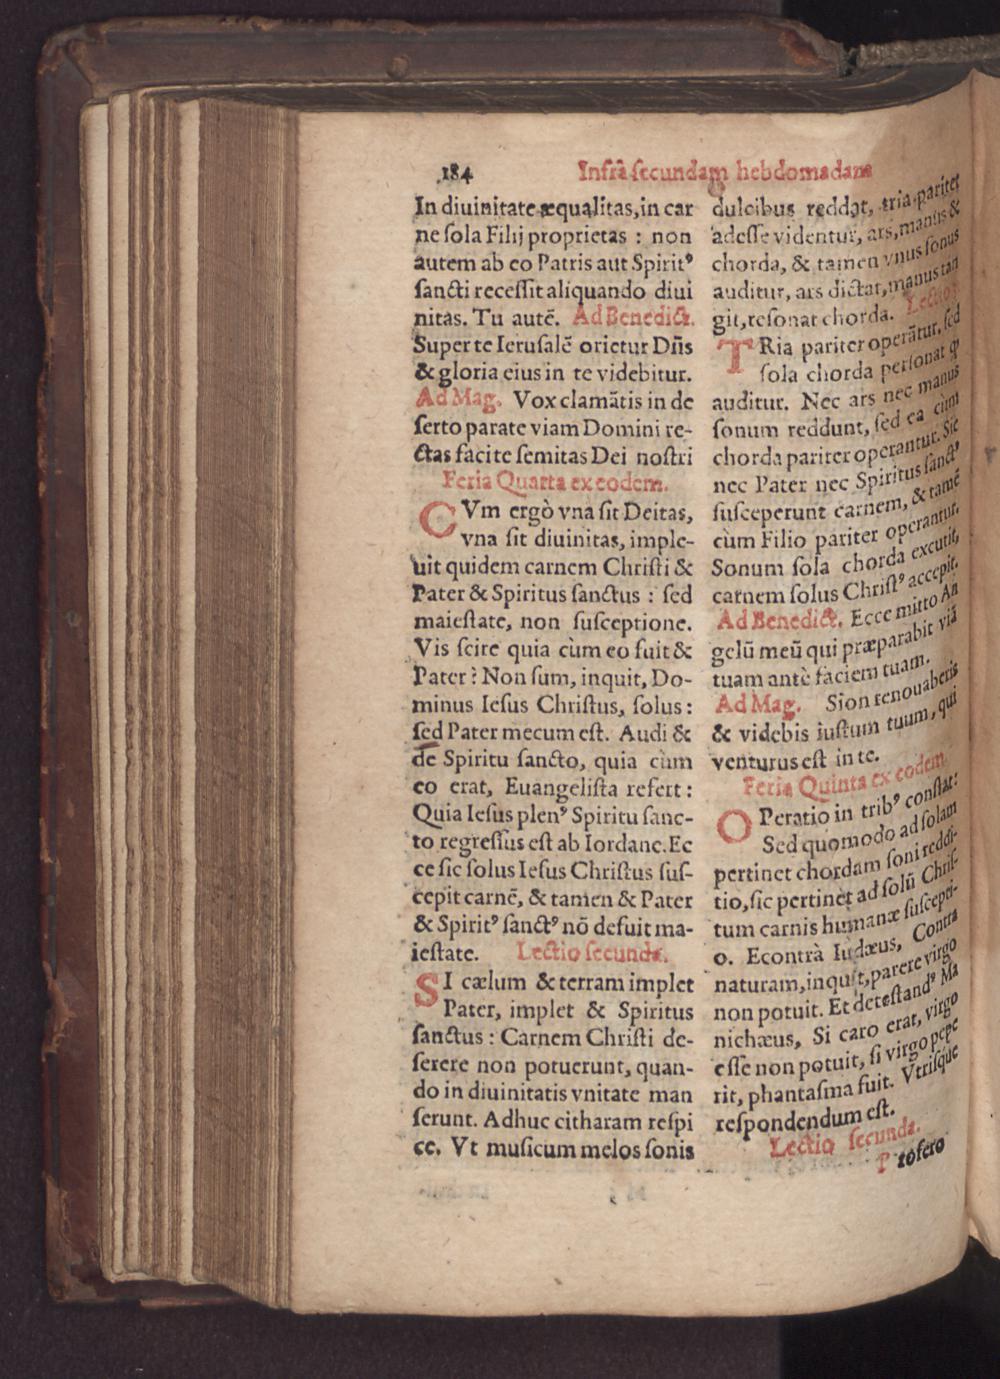 184 Infrà secundam hebdomadam
In diuinitate æqualitas, in car
ne sola Filij proprietas : non
autem ab eo Patris aut Spiritꝰ
sancti recessit aliquando diui
nitas. Tu autē. Ad Benedict.
Super te Ierusalē orietur Dñs
& gloria eius in te videbitur.
Ad Mag. Vox clamātis in de
serto parate viam Domini re-
ctas facite semitas Dei nostri
Feria Quarta ex eodem.
CVm ergò vna sit Deitas,
vna sit diuinitas, imple-
uit quidem carnem Christi &
Pater & Spiritus sanctus : sed
maiestate, non susceptione.
Vis scire quia cùm eo fuit &
Pater ? Non sum, inquit, Do-
minus Iesus Christus, solus :
sed Pater mecum est. Audi &
de Spiritu sancto, quia cùm
eo erat, Euangelista refert :
Quia Iesus plenꝰ Spiritu sanc-
to regressus est ab Iordane. Ec
ce sic solus Iesus Christus sus-
cepit carnē, & tamen & Pater
& Spiritꝰ sanctꝰ nō defuit ma-
iestate. Lectio secunda.
SI cælum & terram implet
Pater, implet & Spiritus
sanctus : Carnem Christi de-
serere non potuerunt, quan-
do in diuinitatis vnitate man
serunt. Adhuc citharam respi
ce. Vt musicum melos sonis
dulcibus reddat, tria pariter
adesse videntur, ars, manus &
chorda, & tamen vnus sonus
auditur, ars dictat, manus tan
git, resonat chorda. Lectio
TRia pariter operātur, sed
sola chorda personat ꝙ
auditur. Nec ars nec manus
sonum reddunt, sed ea cùm
chorda pariter operantur. Sic
nec Pater nec Spiritus sanctꝰ
susceperunt carnem, & tamē
cùm Filio pariter operantur.
Sonum sola chorda excutit,
carnem solus Christꝰ accepit.
Ad Benedict. Ecce mitto An
gelū meū qui præparabit viā
tuam antè faciem tuam.
Ad Mag. Sion renouaberis
& videbis iustum tuum, qui
venturus est in te.
Feria Quinta ex eodem.
OPeratio in tribꝰ constat :
Sed quomodo ad solam
pertinet chordam soni reddi-
tio, sic pertinet ad solū Chris-
tum carnis humanæ suscepti-
o. Econtrà Iudæus, Contra
naturam, inquit, parere virgo
non potuit. Et detestandꝰ Ma
nichæus, Si caro erat, virgo
esse non potuit, si virgo pepe
rit, phantasma fuit. Vtrisque
respondendum est.
Lectio secunda.
Profero